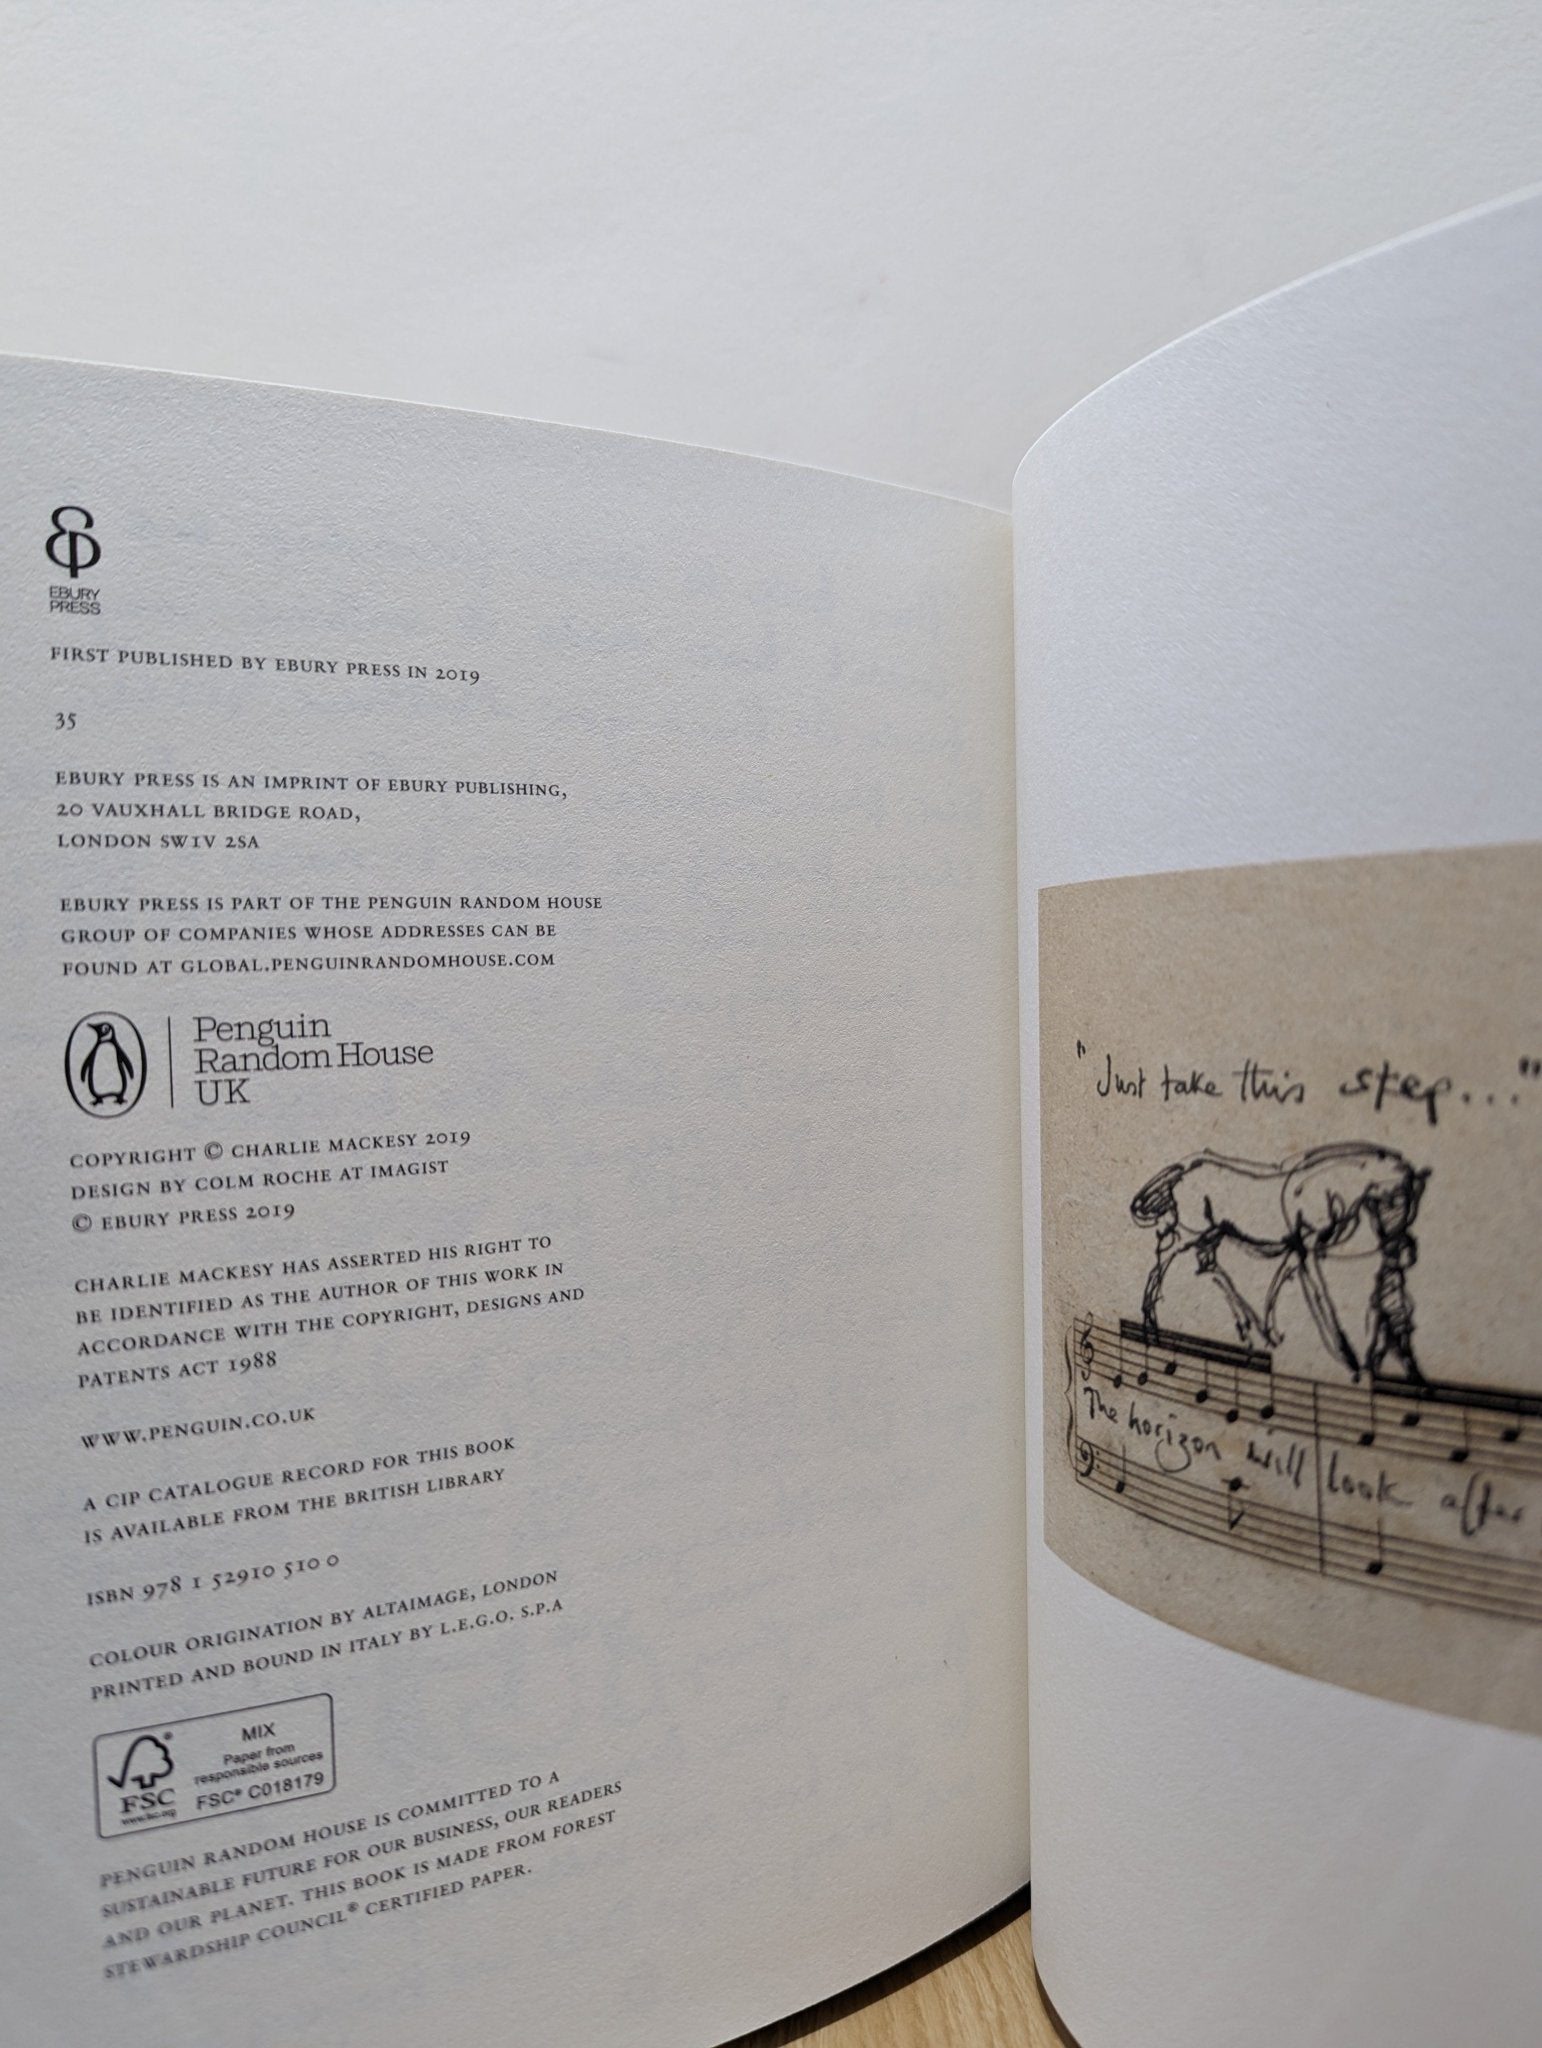 EBURY
PRESS
FIRST PUBLISHED BY EBURY PRESS IN 2019
35
EBURY PRESS IS AN IMPRINT OF EBURY PUBLISHING,
20 VAUXHALL BRIDGE ROAD,
LONDON SW1V 2SA
EBURY PRESS IS PART OF THE PENGUIN RANDOM HOUSE
GROUP OF COMPANIES WHOSE ADDRESSES CAN BE
FOUND AT GLOBAL.PENGUINRANDOMHOUSE.COM
Penguin
Random House
UK
COPYRIGHT © CHARLIE MACKESY 2019
DESIGN BY COLM ROCHE AT IMAGIST
© EBURY PRESS 2019
CHARLIE MACKESY HAS ASSERTED HIS RIGHT TO
BE IDENTIFIED AS THE AUTHOR OF THIS WORK IN
ACCORDANCE WITH THE COPYRIGHT, DESIGNS AND
PATENTS ACT 1988
WWW.PENGUIN.CO.UK
A CIP CATALOGUE RECORD FOR THIS BOOK
IS AVAILABLE FROM THE BRITISH LIBRARY
ISBN 978 1 52910 510 0
COLOUR ORIGINATION BY ALTAIMAGE, LONDON
PRINTED AND BOUND IN ITALY BY L.E.G.O. S.P.A
FSC
www.fsc.org
MIX
Paper from
responsible sources
FSC® C018179
PENGUIN RANDOM HOUSE IS COMMITTED TO A
SUSTAINABLE FUTURE FOR OUR BUSINESS, OUR READERS
AND OUR PLANET. THIS BOOK IS MADE FROM FOREST
STEWARDSHIP COUNCIL® CERTIFIED PAPER.
"Just take this step..."
The horizon will look after